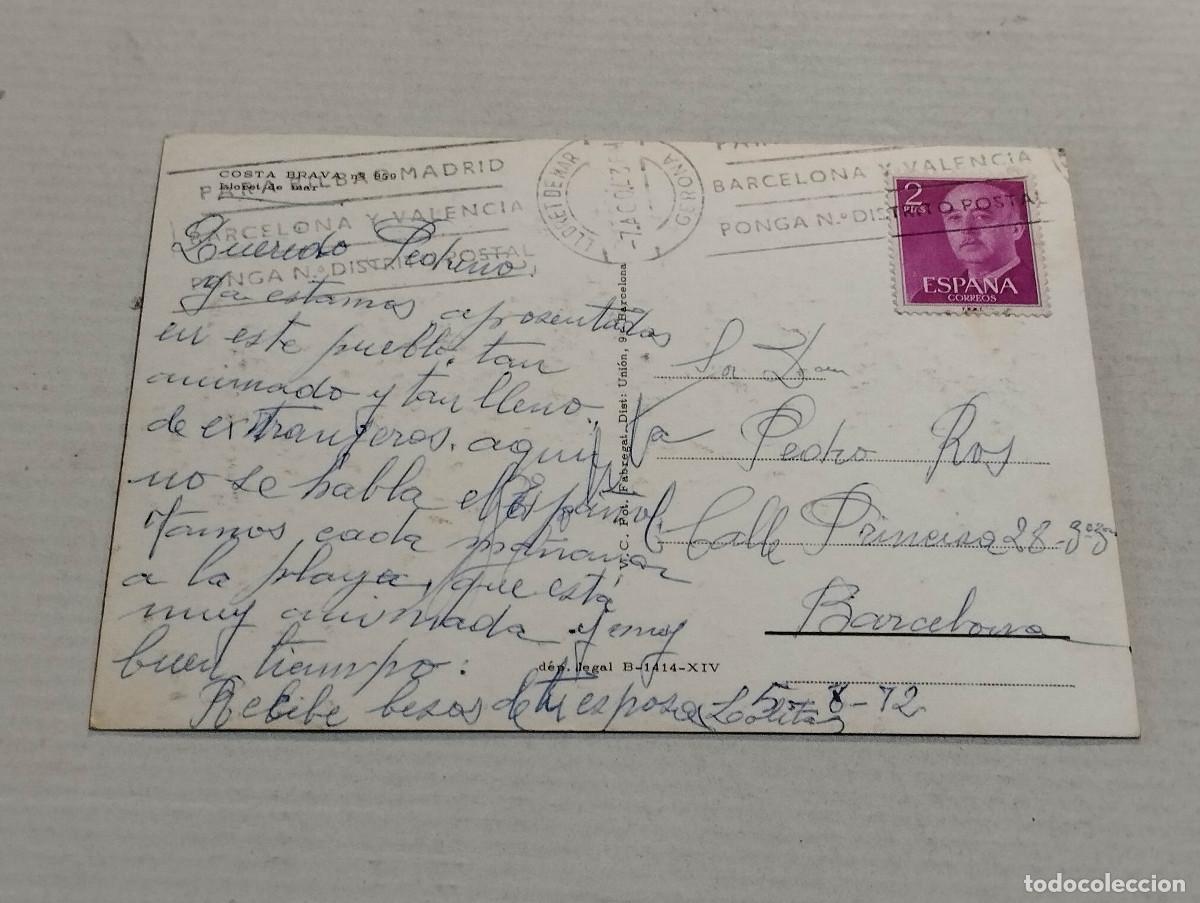 COSTA BRAVA nº 959
Lloret de Mar
PARA BILBAO MADRID
BARCELONA Y VALENCIA
PONGA N.º DISTRITO POSTAL
LLORET DE MAR
GERONA
BARCELONA Y VALENCIA
PONGA N.º DISTRITO POSTAL
2
PTS
ESPAÑA
CORREOS
Querido Pedrino,
Ya estamos aposentadas
en este pueblo tan
animado y tan lleno
de extranjeros. aquí
no se habla el Español.
Vamos cada mañana
a la playa, que está
muy animada y muy
buen tiempo:
Recibe besos de tu esposa (Lolita)
5-8-72
V. C. Fot. Fabregat. Dist: Unión, 9 - Barcelona
dép. legal B-1414-XIV
Sr. Don
Pedro Ros
Calle Princesa 28-3º
Barcelona
todocoleccion